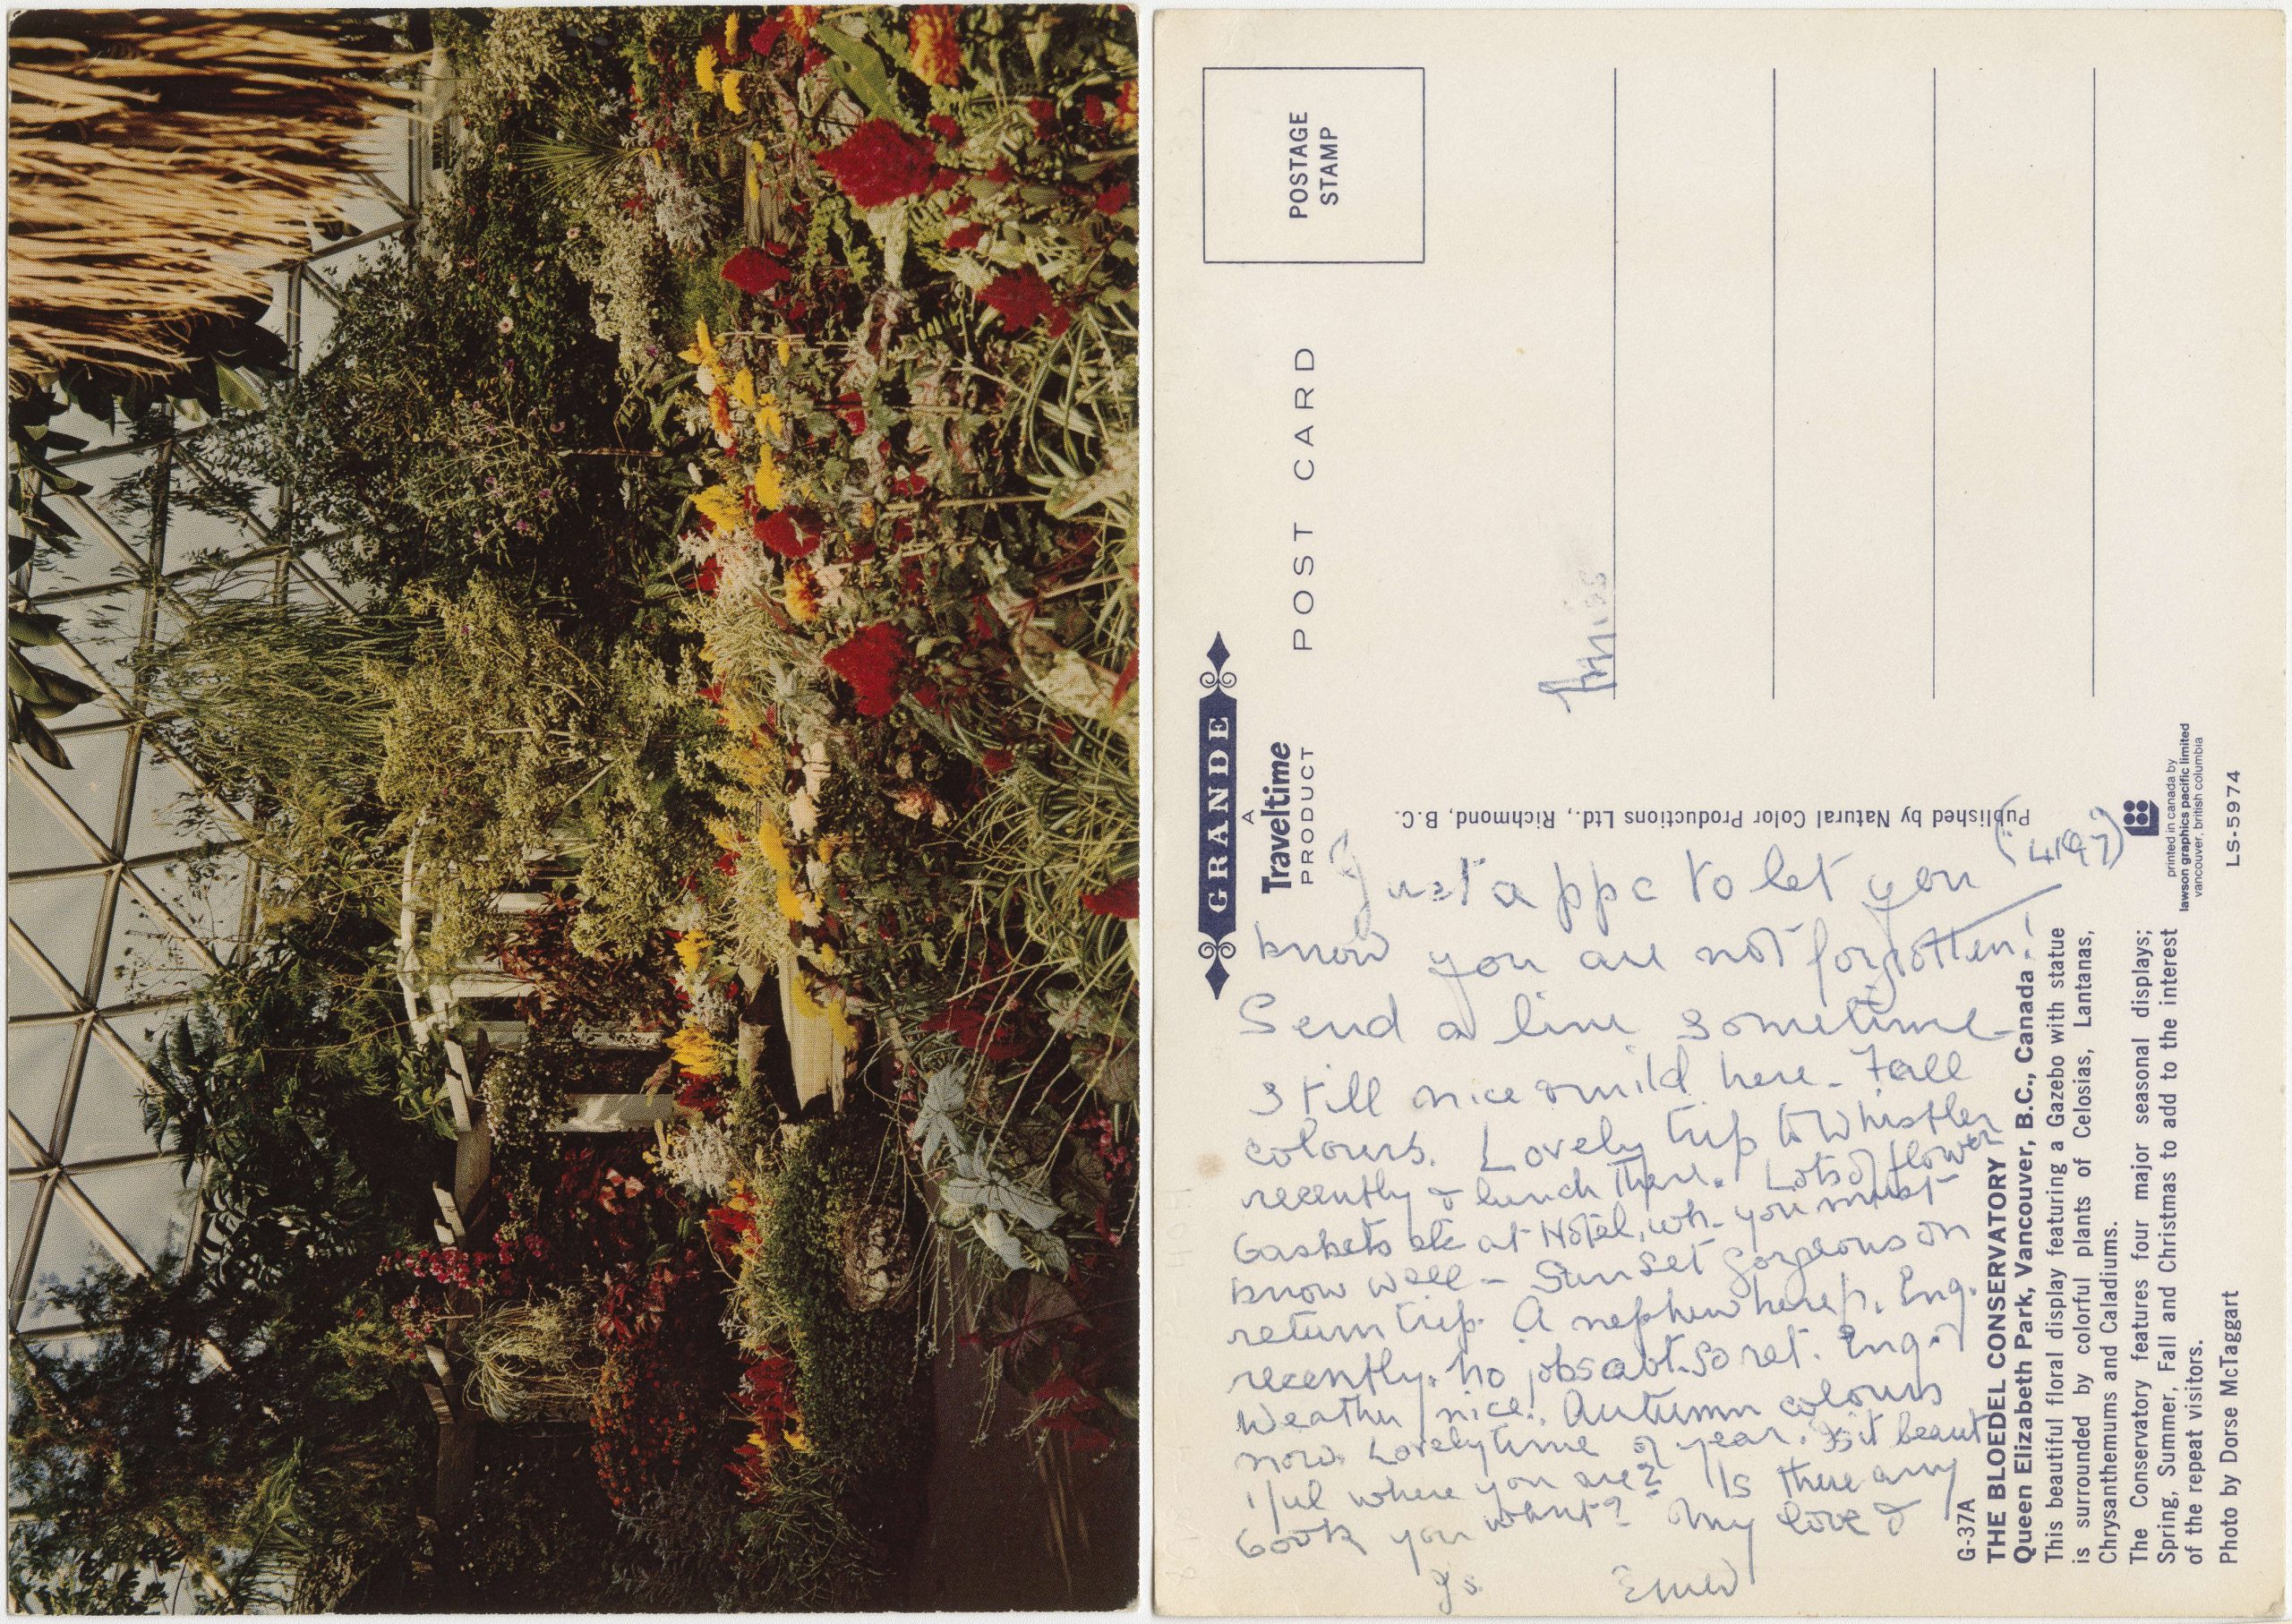 GRANDE
A
Traveltime
PRODUCT
POST CARD
POSTAGE
STAMP
Miss
Published by Natural Color Productions Ltd., Richmond, B.C.
Just a ppc to let you
know you are not forgotten!
Send a line sometime
Still nice & mild here - Fall
colours. Lovely trip to Whistler
recently & lunch there. Lots of flower
baskets etc at Hotel, wh. you must
know well - Sunset gorgeous on
return trip. A nephew here Eng.
recently. No jobs abt. so ret. Eng.
Weather nice. Autumn colours
now. Lovely time of year. Is it beaut
iful where you are? Is there any
book you want? My love &
G-37A
THE BLOEDEL CONSERVATORY
Queen Elizabeth Park, Vancouver, B.C., Canada
This beautiful floral display featuring a Gazebo with statue
is surrounded by colorful plants of Celosias, Lantanas,
Chrysanthemums and Caladiums.
The Conservatory features four major seasonal displays;
Spring, Summer, Fall and Christmas to add to the interest
of the repeat visitors.
Photo by Dorse McTaggart
printed in canada by
lawson graphics pacific limited
vancouver, british columbia
LS-5974